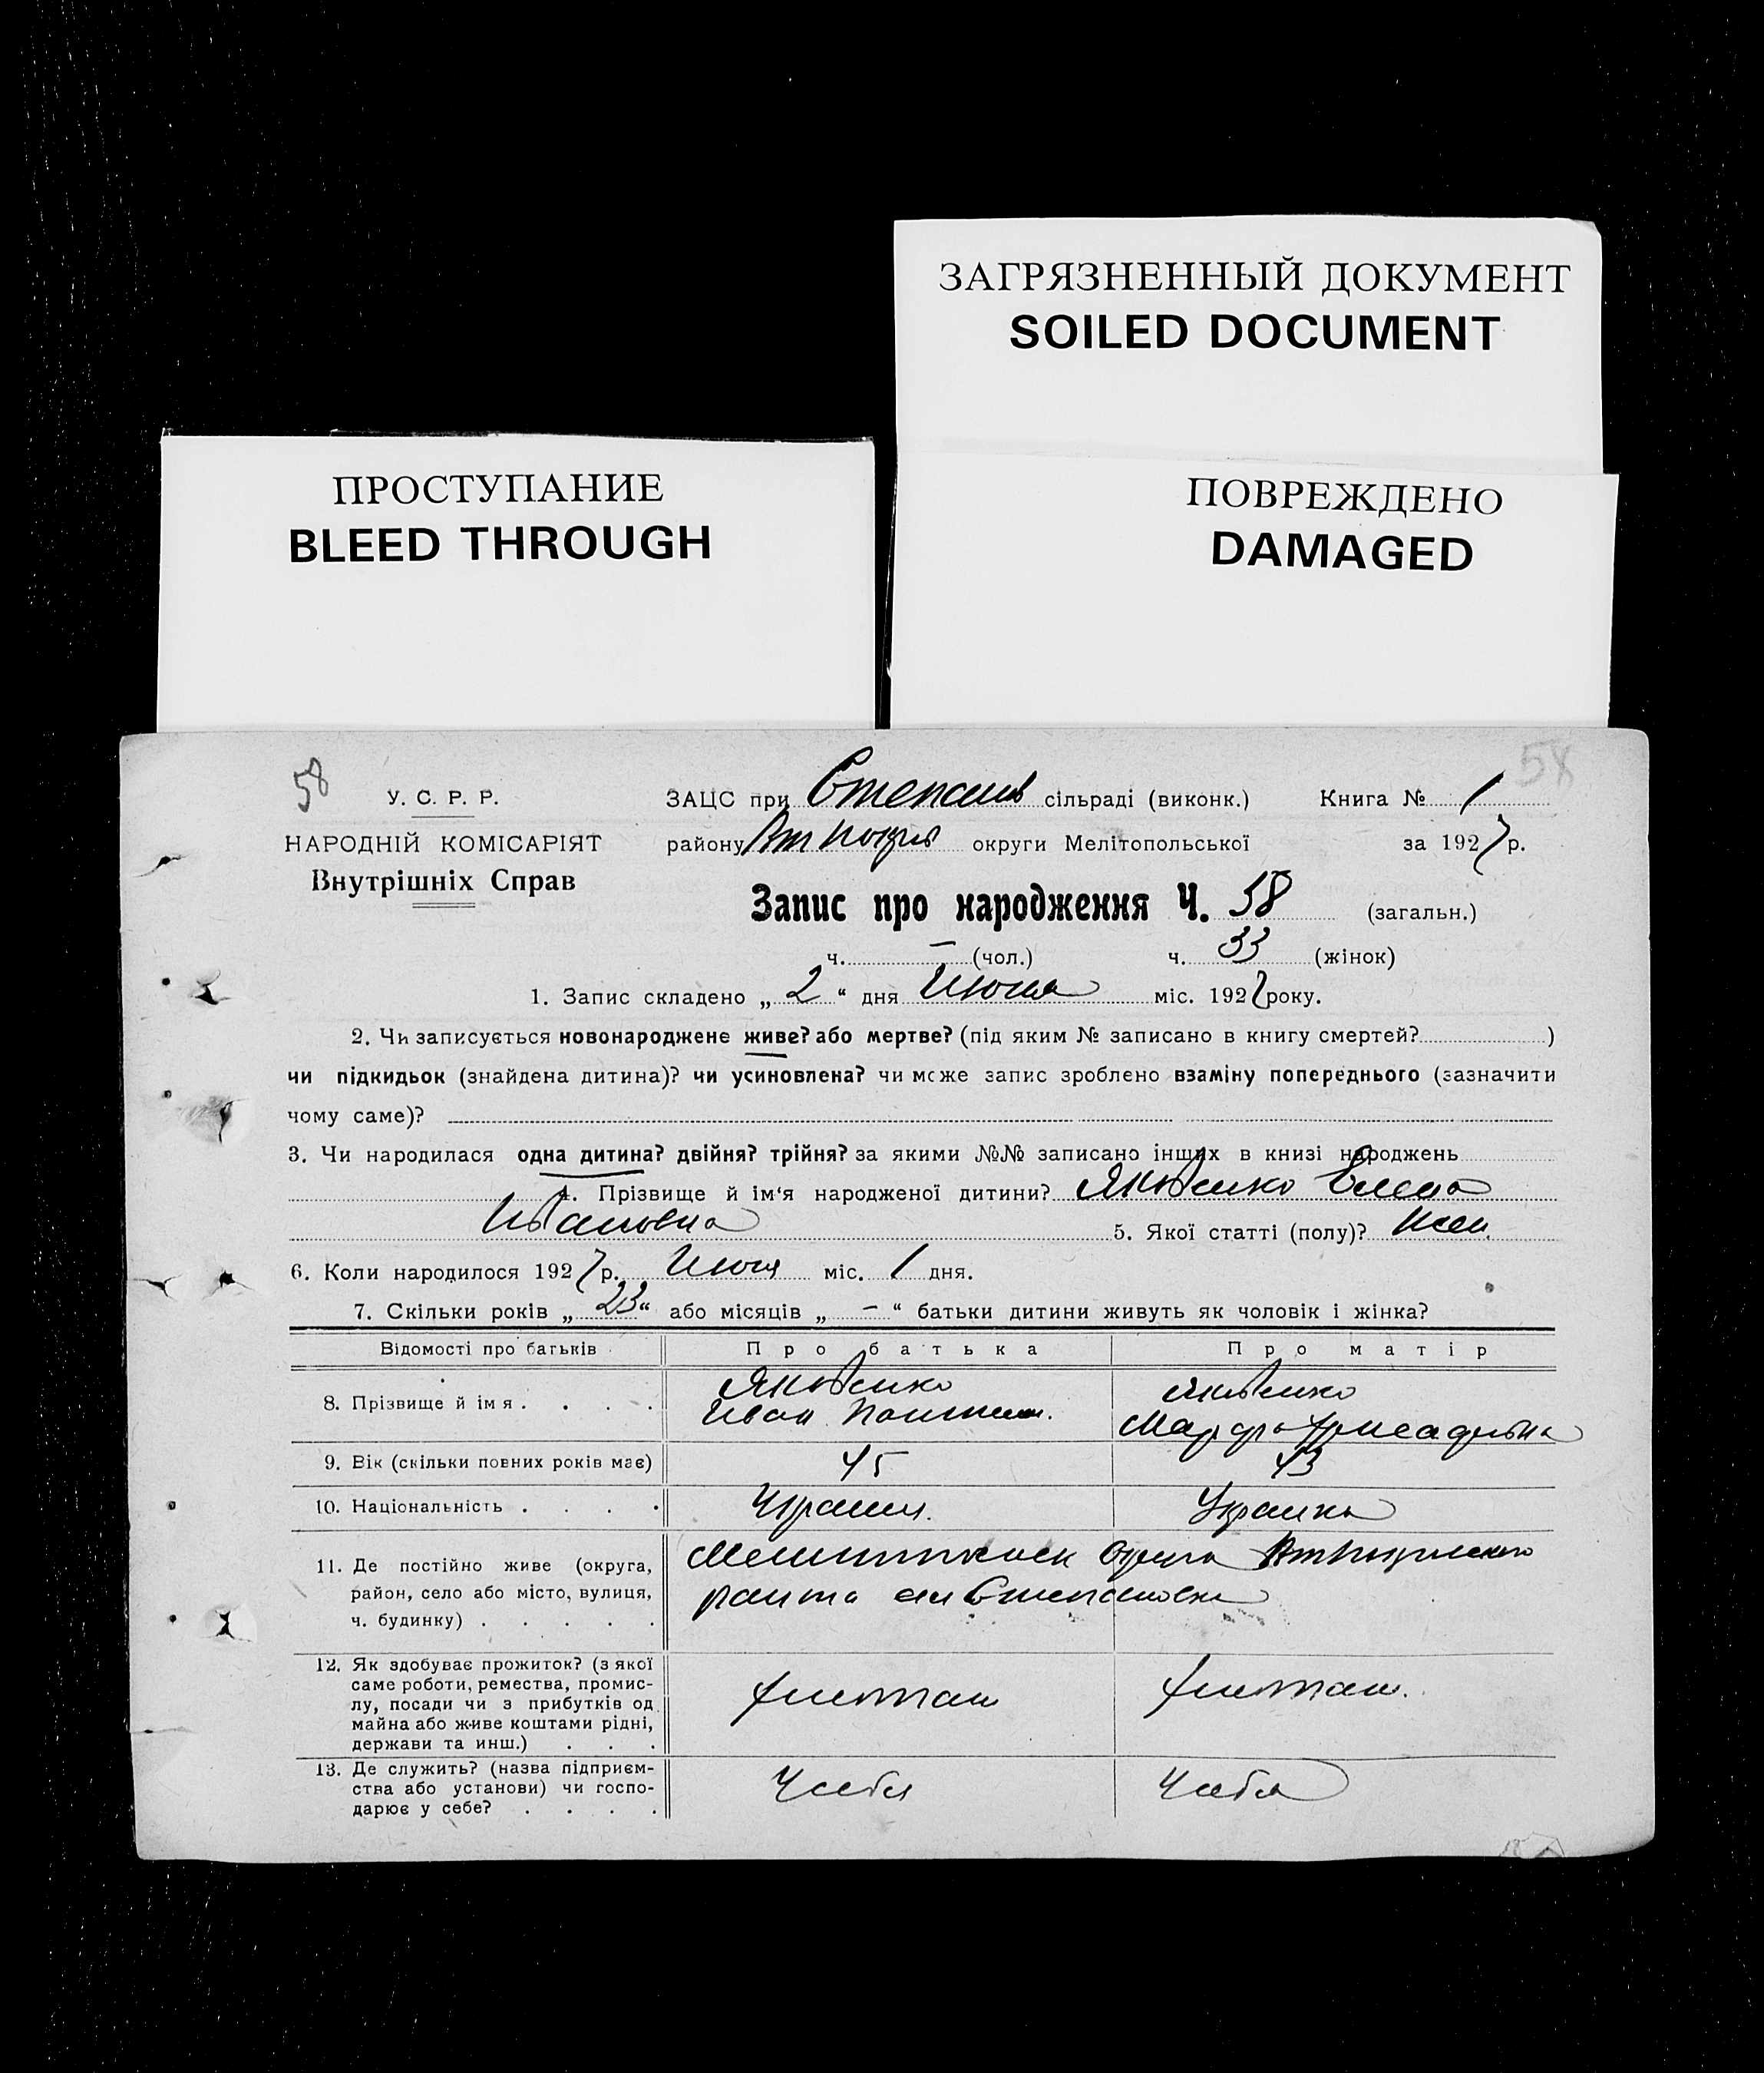 ЗАГРЯЗНЕННЫЙ ДОКУМЕНТ
SOILED DOCUMENT
ПРОСТУПАНИЕ
BLEED THROUGH
ПОВРЕЖДЕНО
DAMAGED
58
58
У. С. Р. Р.
НАРОДНІЙ КОМІСАРІЯТ
Внутрішніх Справ
ЗАЦС при Степанів сільраді (виконк.) Книга № 1
району округи Мелітопольської за 1927 р.
Запис про народження Ч. 58 (загальн.)
ч. – (чол.) ч. 33 (жінок)
1. Запис складено „ 2 “ дня міс. 1927 року.
2. Чи записується новонароджене живе? або мертве? (під яким № записано в книгу смертей? )
чи підкидьок (знайдена дитина)? чи усиновлена? чи може запис зроблено взаміну попереднього (зазначити
чому саме)?
3. Чи народилася одна дитина? двійня? трійня? за якими №№ записано інших в книзі народжень
4. Прізвище й ім‘я народженої дитини? Яковенко Елена
Ивановна 5. Якої статті (полу)? жен.
6. Коли народилося 1927 р. міс. 1 дня.
7. Скільки років „ 23 “ або місяців „ – “ батьки дитини живуть як чоловік і жінка?
Відомості про батьків Про батька Про матір
8. Прізвище й ім я . . . . Яковенко Иван Яковенко Марфа
9. Вік (скільки повних років має) 45 43
10. Національність . . . . Украин. Украинка
11. Де постійно живе (округа,
район, село або місто, вулиця,
ч. будинку) . . . . .
района Степановка
12. Як здобуває прожиток? (з якої
саме роботи, ремества, промис-
лу, посади чи з прибутків од
майна або живе коштами рідні,
держави та инш.) . . .
13. Де служить? (назва підприєм-
ства або установи) чи госпо-
дарює у себе? . . . .
У себя У себя